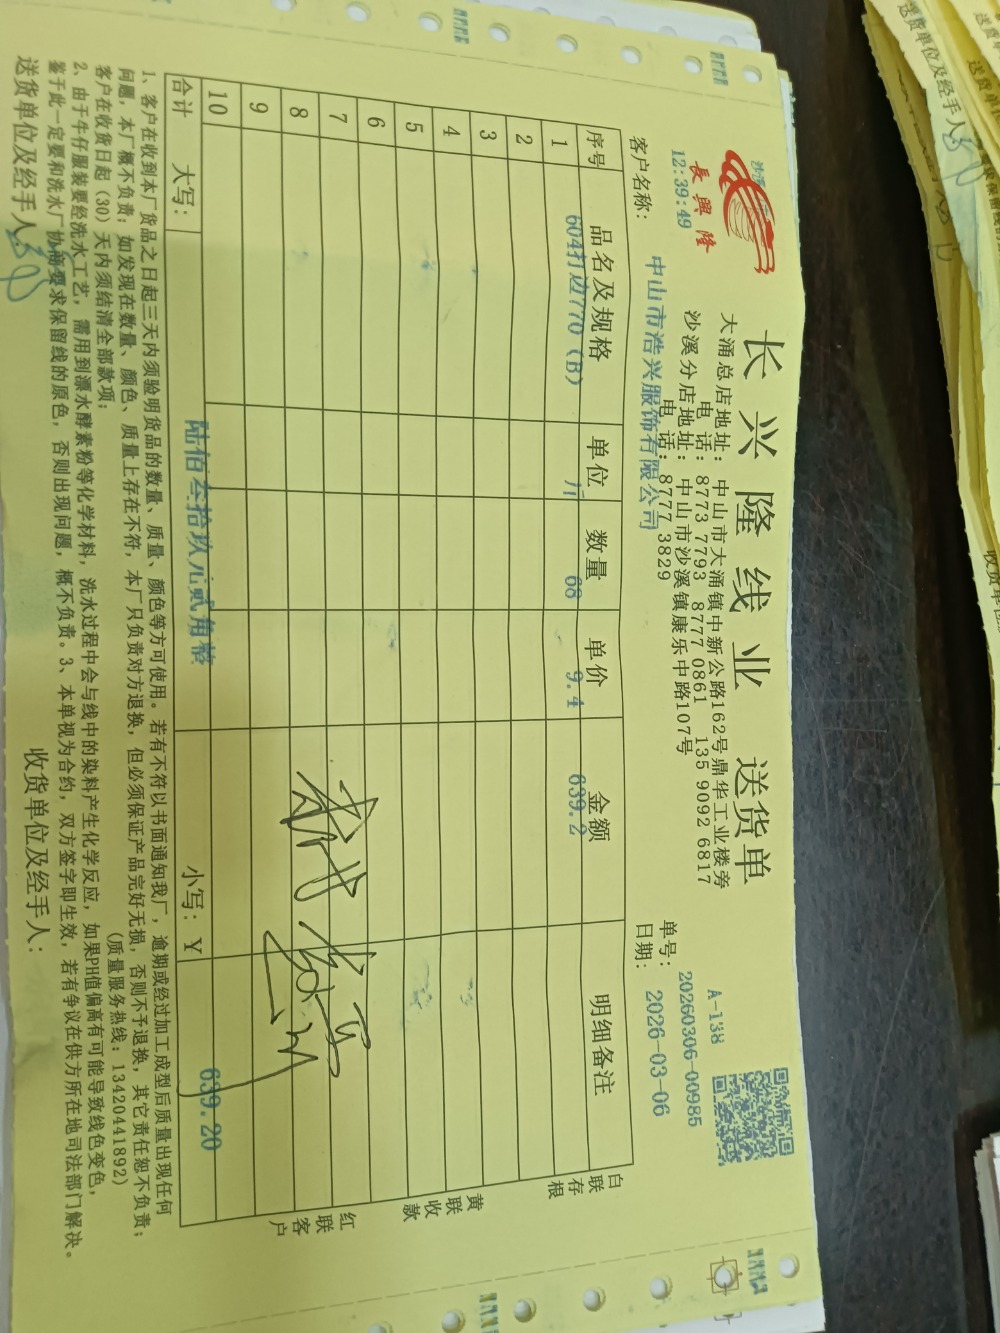 长兴隆线业 送货单
長興隆
12:39:49
大涌总店地址：中山市大涌镇中新公路162号鼎华工业楼旁
电 话：8773 7793 8777 0861 135 9092 6817
沙溪分店地址：中山市沙溪镇康乐中路107号
电 话：8777 3829
A-138
单号：20260306-00985
客户名称：中山市浩兴服饰有限公司
日期：2026-03-06
序号 品名及规格 单位 数量 单价 金额 明细备注
1 604打边770（B） 斤 68 9.4 639.2
2
3
4
5
6
7
8
9
10
合计 大写：陆佰叁拾玖元贰角整 小写：Y 639.20
白联存根
黄联收款
红联客户
1、客户在收到本厂货品之日起三天内须验明货品的数量、质量、颜色等方可使用。若有不符以书面通知我厂，逾期或经过加工成型后质量出现任何
问题，本厂概不负责；如发现在数量、颜色、质量上存在不符，本厂只负责对方退换，但必须保证产品完好无损，否则不予退换，其它责任恕不负责；
客户在收货日起（30）天内须结清全部款项； （质量服务热线：13420441892）
2、由于牛仔服装要经洗水工艺，需用到漂水酵素粉等化学材料，洗水过程中会与线中的染料产生化学反应，如果PH值偏高有可能导致线色变色，
鉴于此一定要和洗水厂协商要求保留线的原色，否则出现问题，概不负责。3、本单视为合约，双方签字即生效，若有争议在供方所在地司法部门解决。
送货单位及经手人： 收货单位及经手人：
送货单位及经手人